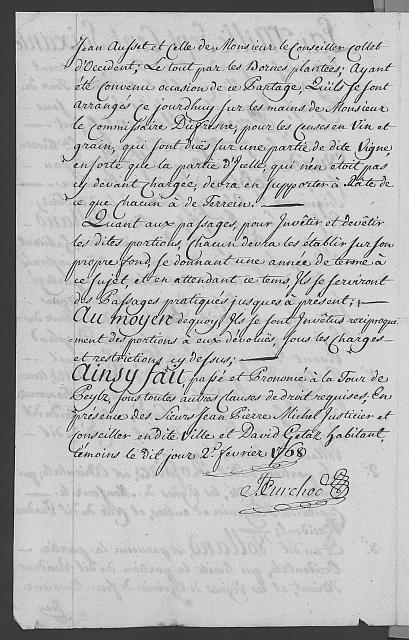 Jean Ausset et Celle de Monsieur le Conseiller Collet
d'Occident; Le tout par les Bornes plantées; Ayant
été Convenu occasion de ce Partage, Quils se font
arrangés ce jourdhuy sur les mains de Monsieur
le Commissaire Dufresne, pour les Censes en Vin et
grain, qui sont düés sur une partie de dite Vigne
en sorte que la partie d'Icelle, qui n'en êtoit pas
cy devant chargée, devra en supporter à Rate de
ce que chacun à de Terrein. —
Quant aux passages, pour Invêtir et devêtir
les dites portions, Chacun devra les êtablir sur son
propre fond, se donnant une année de terme à
ce sujet, et en attendant ce tems, Ils se serviront
des Passages pratiqués jusques à présent; —
Au moyen dequoy, Ils se sont Invêtus reciproque
ment des portions à eux dévolües, sous les Charges
et restrictions cy dessus; —
Ainsy fait, passé et Prononcé à la Tour de
Peylz, sous toutes autres Clauses de droit requises, En
présence des Sieurs Jean Pierre Michel Justicier et
Conseiller en dite Ville et David Getaz Habitant,
témoins le dit jour 2e. fevrier 1768